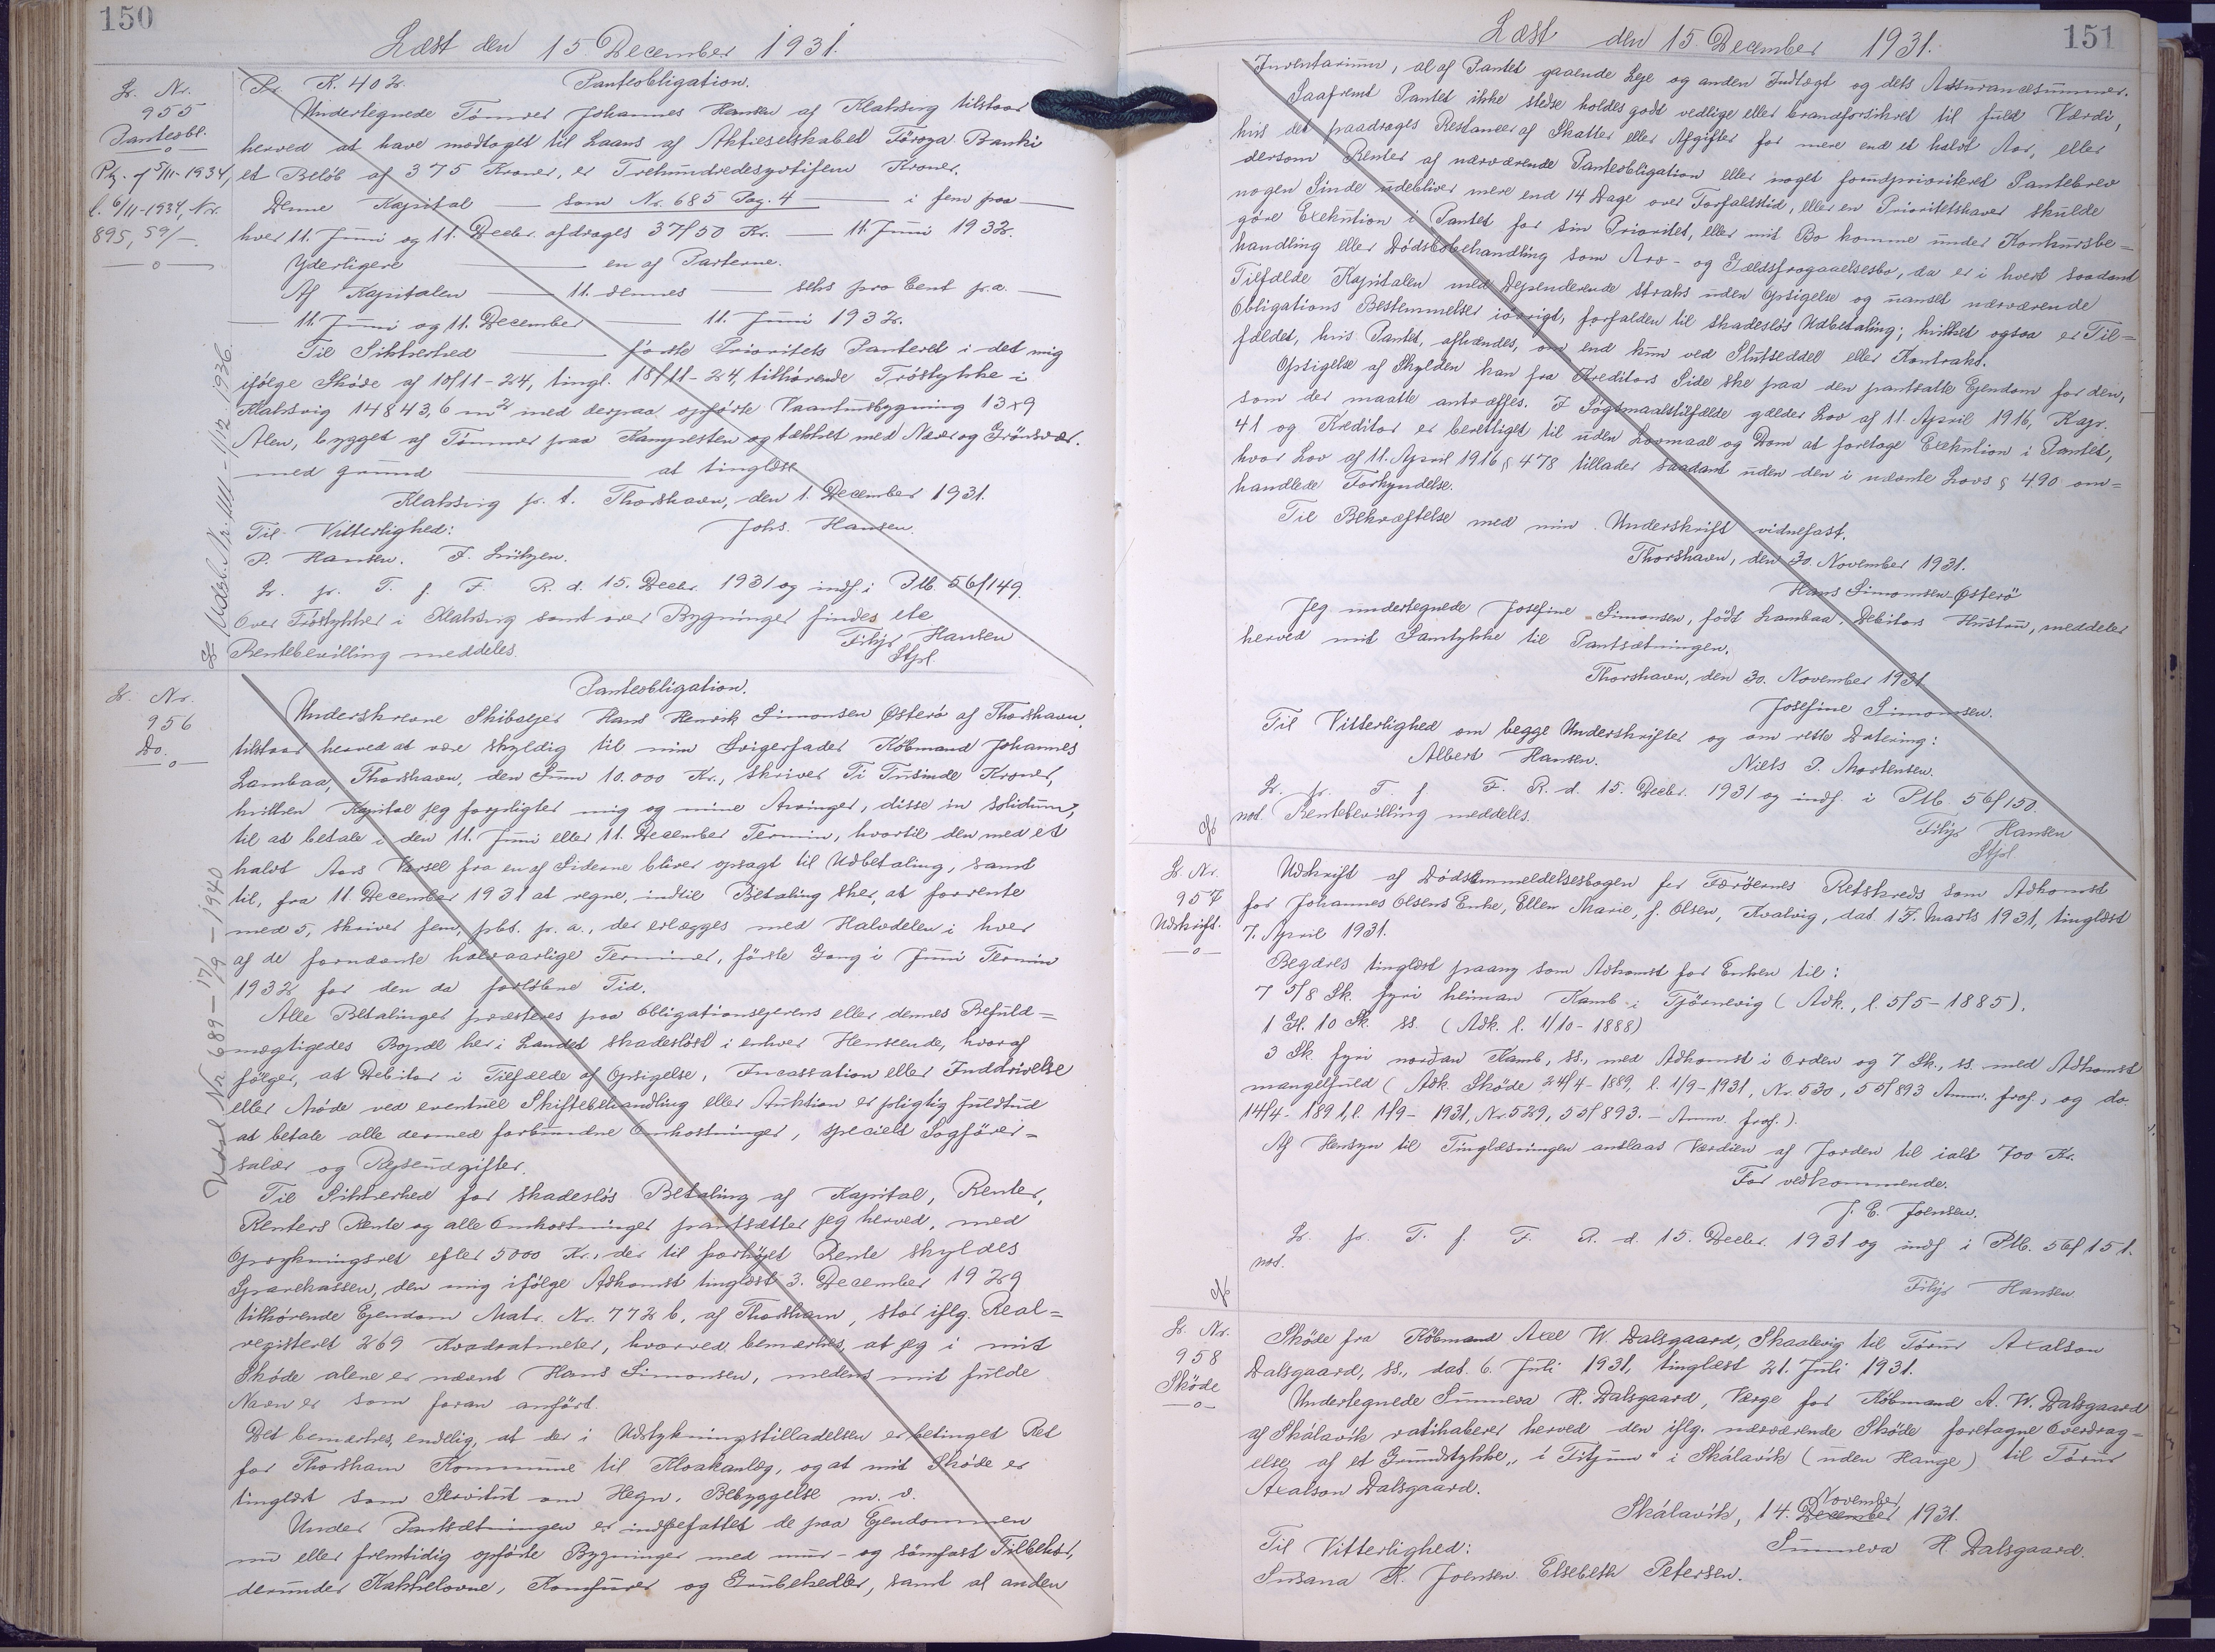 150
Læst den 15. December 1931.
L. Nr.
955
Panteobl.
Ptg. af 5/11-1934,
l. 6/11-1934, Nr.
895, 59/-.
Udsl. Nr. 1111 - 1/12 1936.
Pr. K. 40 2.
Panteobligation.
Undertegnede Tømrer Johannes Hansen af Klaksvig tilstaar
herved at have modtaget til Laans af Aktieselskabet Föroya Banki
et Beløb af 375 Kroner, er Trehundredesyvtifem Kroner.
Denne Kapital — som Nr. 685 Pag. 4 — i fem paa —
hver 11. Juni og 11. Decbr. afdrages 37/50 Kr. — 11. Juni 1932.
Yderligere — en af Parterne.
Af Kapitalen — 11. dennes — seks pro Cent p.a. —
— 11. Juni og 11. December — 11. Juni 1932.
Til Sikkerhed — første Prioritets Panteret i det mig
ifølge Skøde af 10/11-24, tingl. 18/11-24, tilhørende Trøstykke i
Klaksvig 14843,6 m² med derpaa opførte Vaanhusbygning 13 x 9
Alen, bygget af Tømmer paa Kampesten og tækket med Næver og Grønsvær.
med grund — at tinglæse
Klaksvig p. t. Thorshavn, den 1. December 1931.
Til Vitterlighed: Johs. Hansen.
P. Hansen. F. Lützen.
L. pr. T. f. F. R. d. 15. Decbr. 1931 og indf. i Ptb. 56/149.
Over Trøstykker i Klaksvig samt over Bygninger findes ete
Rentebevilling meddeles. Filip Hansen
Stpl.
L. Nr.
956
Do.
Udsl. Nr. 689 - 17/9 - 1940
Panteobligation.
Underskrevne Skibsejer Hans Henrik Simonsen Østerø af Thorshavn,
tilstaar herved at være skyldig til min Svigerfader Købmand Johannes
Lambaa, Thorshavn, den Sum 10.000 Kr., skriver Ti Tusinde Kroner,
hvilken Kapital jeg forpligter mig og mine Arvinger, disse in solidum,
til at betale i den 11. Juni eller 11. December Termin, hvortil den med et
halvt Aars Varsel fra en af Siderne bliver opsagt til Udbetaling, samt
til, fra 11. December 1931 at regne, indtil Betaling sker, at forrente
med 5, skriver fem, pCt. p. a., der erlægges med Halvdelen i hver
af de fornævnte halvaarlige Terminer, første Gang i Juni Termin
1932 for den da forløbne Tid.
Alle Betalinger præsteres paa Obligationsejerens eller dennes Befuld=
mægtigedes Bopæl her i Landet skadesløst i enhver Henseende, hvoraf
følger, at Debitor i Tilfælde af Opsigelse, Incassation eller Inddrivelse
eller Møde ved eventuel Skiftebehandling eller Auktion er pligtig fuldtud
at betale alle dermed forbundne Omkostninger, specielt Sagfører=
salær og Rejseudgifter.
Til Sikkerhed for skadesløs Betaling af Kapital, Renter,
Renters Rente og alle Omkostninger pantsætter jeg herved, med
Oprykningsret efter 5000 Kr., der til forhøjet Rente skyldes
Sparekassen, den mig ifølge Adkomst tinglæst 3. December 1929
tilhørende Ejendom Matr. Nr. 772 b. af Thorshavn, stor iflg. Real=
registeret 269 Kvadratmeter, hvorved bemærkes, at jeg i mit
Skøde alene er nævnt Hans Simonsen, medens mit fulde
Navn er som foran anført.
Det bemærkes, endelig, at der i Udstykningstilladelsen er betinget Ret
for Thorshavn Kommune til Kloakanlæg, og at mit Skøde er
tinglæst som Servitut om Hegn. Bebyggelse m. v.
Under Pantsætningen er indbefattet de paa Ejendommen
nu eller fremtidig opførte Bygninger med mur- og sømfast Tilbehør,
derunder Kakkelovne, Komfurer og Gruekedler, samt al anden
151
Læst den 15. December 1931.
Inventarium, al af Pantet gaaende Leje og anden Indtægt og dets Assurancesummer.
Saafremt Pantet ikke stedse holdes godt vedlige eller brandforsikret til fuld Værdi,
hvis det paadrages Restancer af Skatter eller Afgifter for mere end et halvt Aar, eller
dersom Renter af nærværende Panteobligation eller noget forudprioriteret Pantebrev
nogen Sinde udebliver mere end 14 Dage over Forfaldstid, eller en Prioritetshaver skulde
gøre Exekution i Pantet for sin Prioritet, eller mit Bo komme under Konkursbe=
handling eller Dødsbobehandling som Arv- og Gældsfragaaelsesbo, da er i hvert saadant
Tilfælde Kapitalen med Dependerende straks uden Opsigelse og uanset nærværende
Obligations Bestemmelser iøvrigt, forfalden til skadesløs Udbetaling; hvilket ogsaa er Til=
fældet, hvis Pantet, afhændes, om end kun ved Slutseddel eller Kontrakt.
Opsigelse af Skylden kan fra Kreditors Side ske paa den pantsatte Ejendom for den,
som der maatte antræffes. I Søgsmaalstilfælde gælder Lov af 11. April 1916, Kap.
41 og Kreditor er berettiget til uden Lovmaal og Dom at foretage Exekution i Pantet,
hvor Lov af 11. April 1916 § 478 tillader saadant uden den i nævnte Lovs § 490 om=
handlede Forkyndelse.
Til Bekræftelse med min Underskrift vidnefast.
Thorshavn, den 30. November 1931.
Hans Simonsen-Østerö
Jeg undertegnede Josefine Simonsen, født Lambaa, Debitors Hustru, meddeler
herved mit Samtykke til Pantsætningen.
Thorshavn, den 30. November 1931
Josefine Simonsen.
Til Vitterlighed om begge Underskrifter og om rette Datering:
Albert Hansen. Niels P. Mortensen.
L. pr. T. f. F. R. d. 15. Decbr. 1931 og indf. i Ptb. 56/150.
not. Rentebevilling meddeles.
Filip Hansen
Stpl.
L. Nr.
957
Udskrift.
Udskrift af Dødsanmeldelsesbogen for Færøernes Retskreds som Adkomst
for Johannes Olsens Enke, Ellen Marie, f. Olsen, Kvalvig, dat. 17. Marts 1931, tinglæst
7. April 1931.
Begæres tinglæst paany som Adkomst for Enken til:
7 5/8 Sk. fyri heiman Kamb i Tjörnevig (Adk., l. 5/5-1885).
1 Gl. 10 Sk. ss. (Adk. l. 1/10-1888)
3 Sk. fyri norðan Kamb, ss., med Adkomst i Orden og 7 Sk., ss. med Adkomst
mangelfuld (Adk. Skøde 24/4-1889, l. 1/9-1931, Nr. 530, 55/893 Anm. frof., og do.
14/4-1891, l. 1/9-1931, Nr. 529, 55/893. - Anm. frof.).
Af Hensyn til Tinglæsningen anslaas Værdien af Jorden til ialt 700 Kr.
For vedkommende.
J. E. Joensen.
L. pr. T. f. F. R. d. 15. Decbr. 1931 og indf. i Ptb. 56/151.
not.
Filip Hansen.
L. Nr.
958
Skøde
Skøde fra Købmand Axel W. Dalsgaard, Skaalevig til Tórur Axalson
Dalsgaard, ss., dat. 6. Juli 1931, tinglæst 21. Juli 1931.
Undertegnede Sunneva H. Dalsgaard, Værge for Købmand A. W. Dalsgaard
af Skálavík ratihaberer herved den iflg. nærværende Skøde foretagne Overdrag=
else af et Grundstykke „í Fitjum" i Skálavík (uden Hauge) til Tórur
Axalson Dalsgaard.
Skálavík, 14. December November 1931.
Til Vitterlighed: Sunneva H. Dalsgaard.
Susana K. Joensen. Elsebeth Petersen.